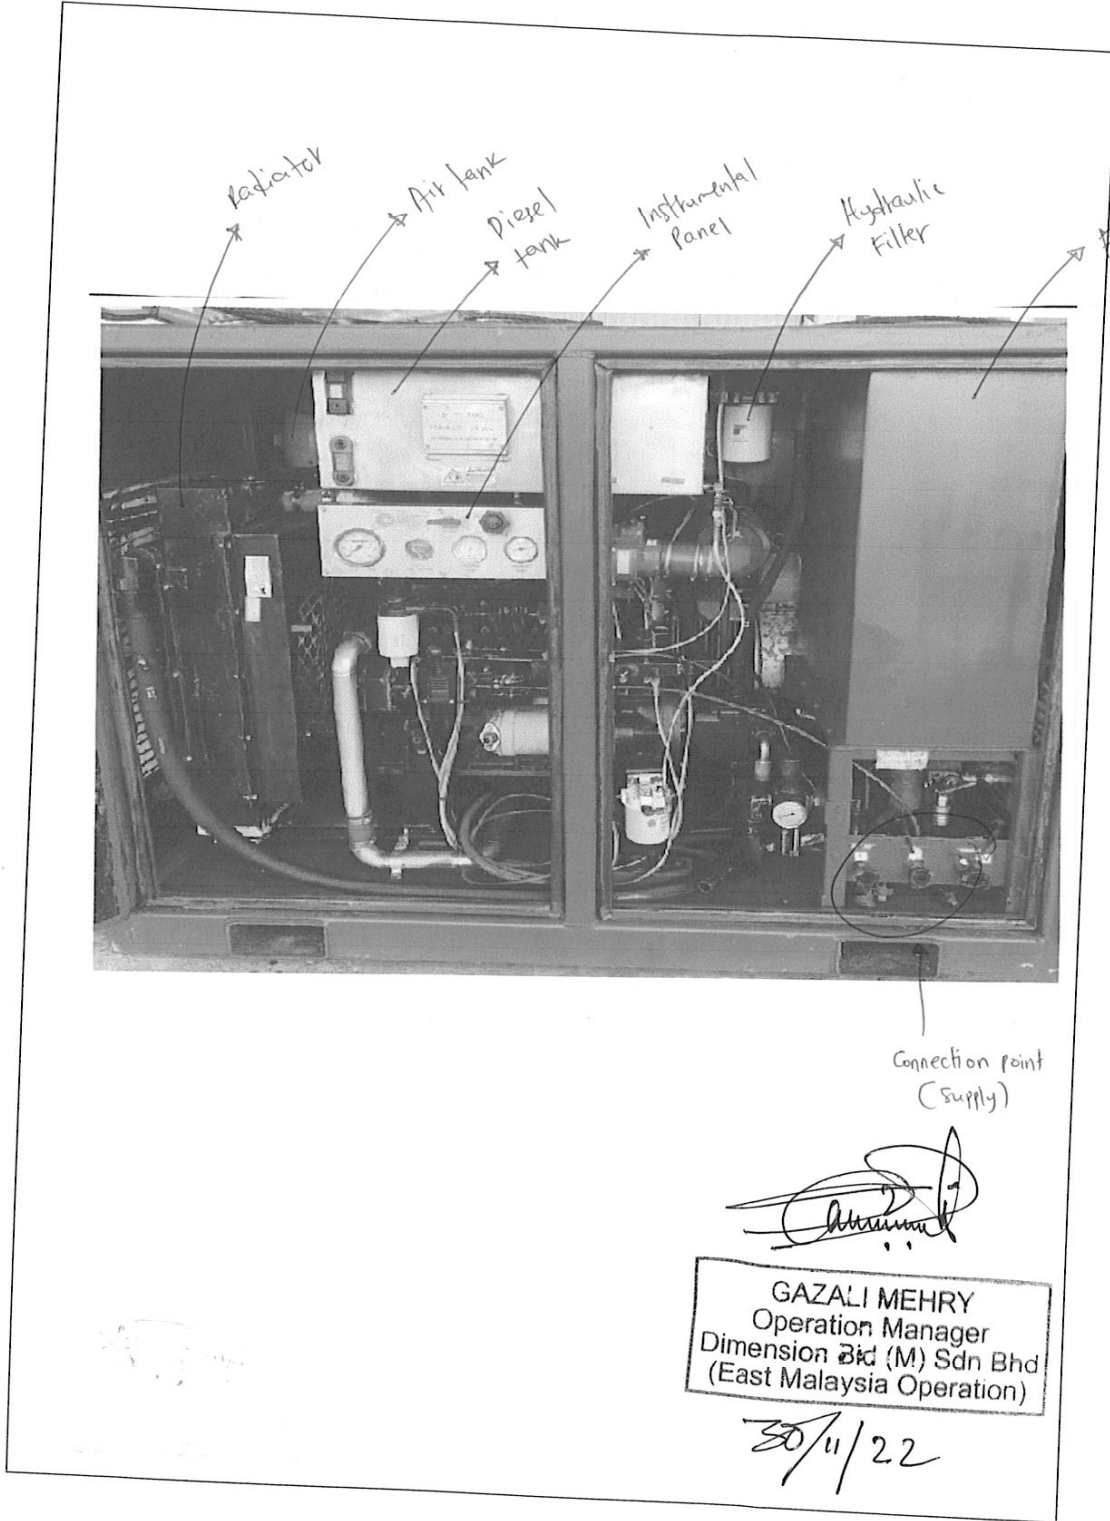 Radiator
Air tank
Diesel
tank
Instrumental
Panel
Hydraulic
Filter
Connection point
(supply)
GAZALI MEHRY
Operation Manager
Dimension Bid (M) Sdn Bhd
(East Malaysia Operation)
30/11/22